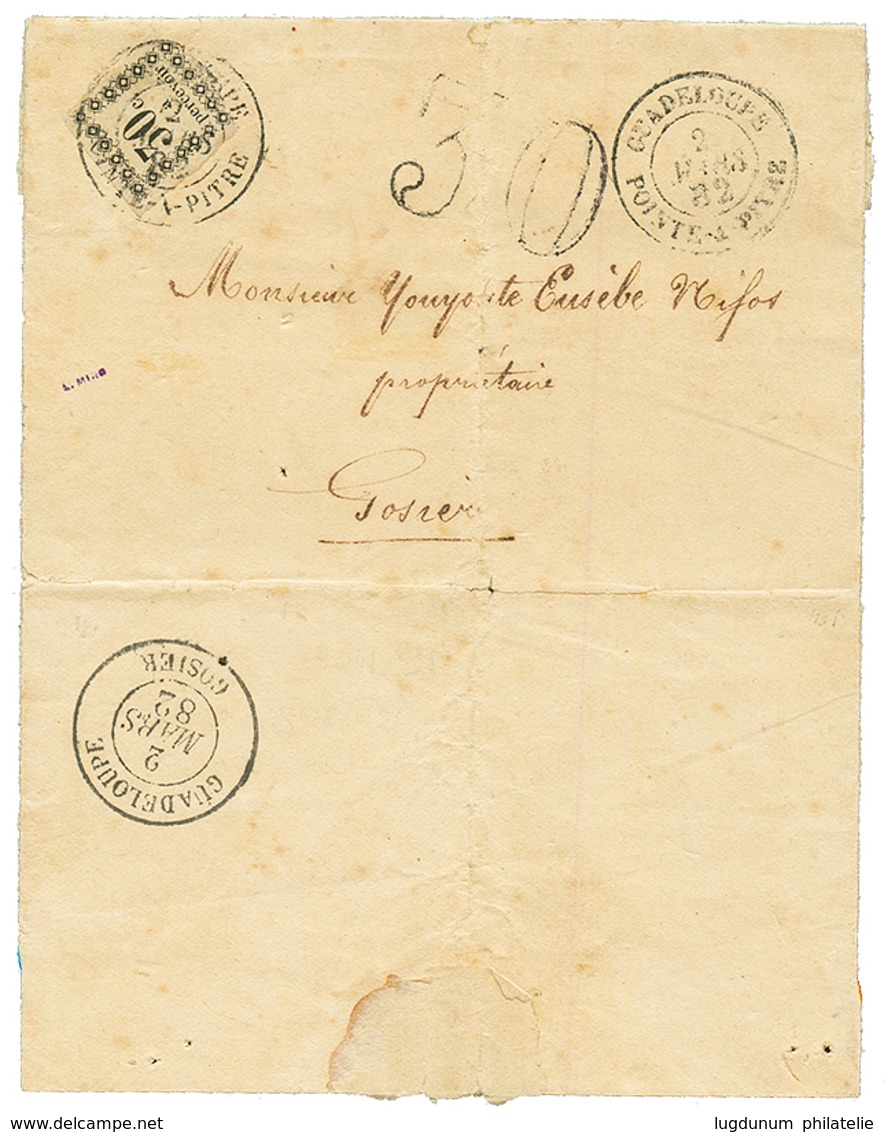 30
c
à
percevoir
PE
-PITRE
30
GUADELOUPE
2
MARS
82
POINTE-A-PITRE
Monsieur Eusèbe Nifos
propriétaire
Gosier
GUADELOUPE
2
MARS
82
GOSIER
www.delcampe.net
lugdunum philatelie